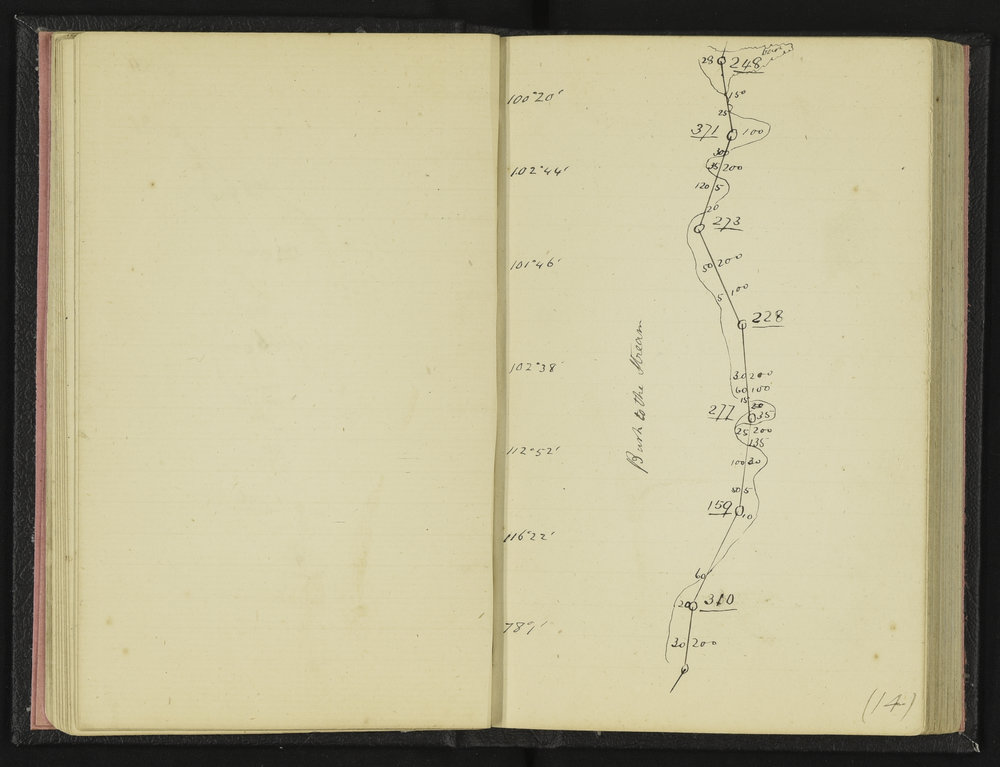 28 248
100°20'
150
25
371 100
300
35 200
102°44'
120 5
20
273
101°46'
50 200
5 100
228
Bush to the Stream
102°38'
30 200
60 100
15
20
277 35
25 200
135
112°52'
100 30
50 5
159 10
116°22'
60
20 310
30 200
(14)